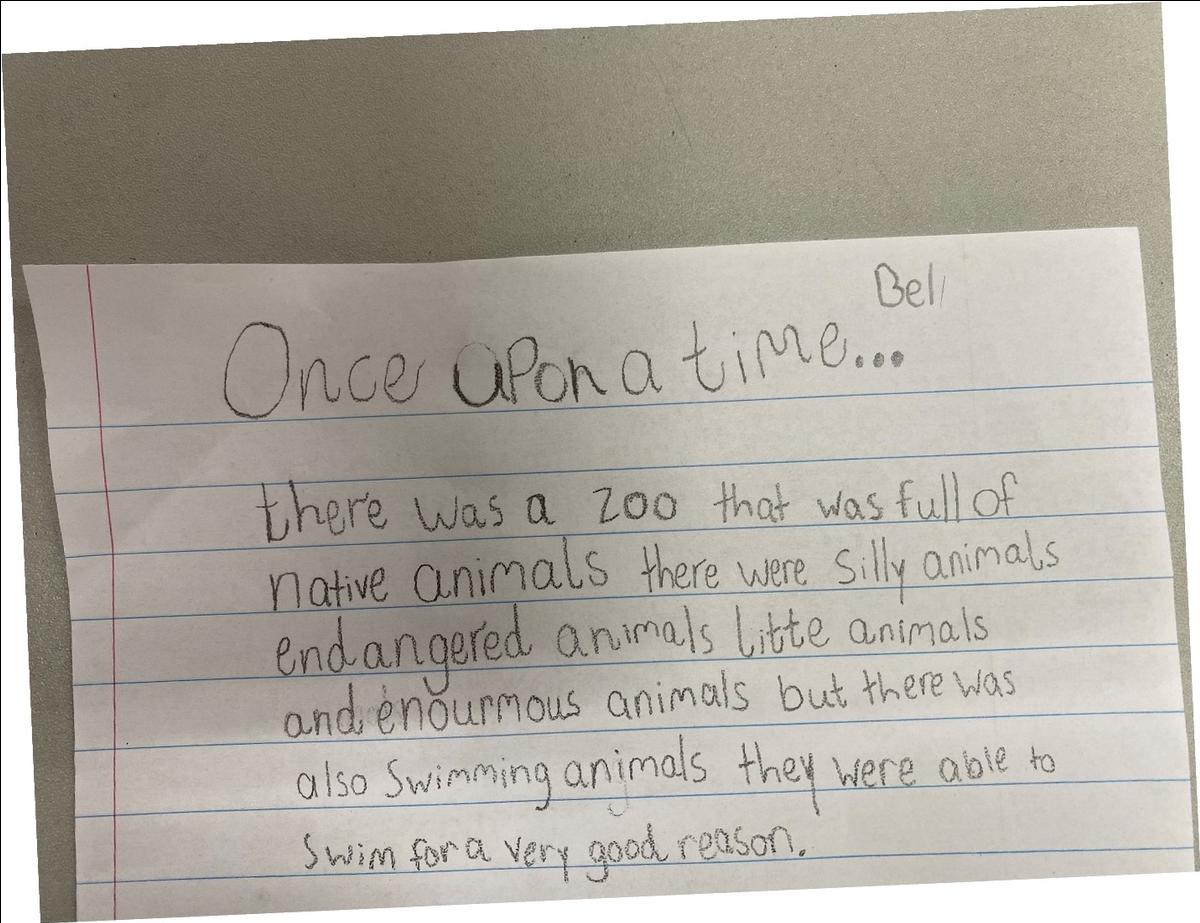 Bell
Once upon a time...
there was a zoo that was full of
native animals there were silly animals
endangered animals litte animals
and enourmous animals but there was
also swimming animals they were able to
swim for a very good reason.